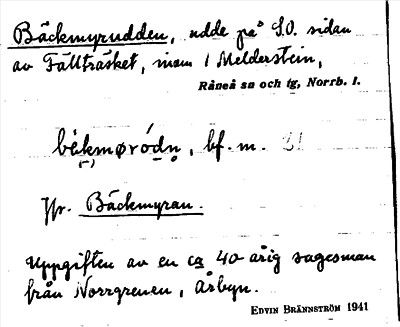 Bäckmyrudden, udde på S.O. sidan
av Fällträsket, inom 1 Melderstein,
Råneå sn och tg, Norrb. l.
bèkmøródn, bf. m. 31
Jfr. Bäckmyran.
Uppgiften av en ca 40 årig sagesman
från Norrgrenen, Årbyn.
EDVIN BRÄNNSTRÖM 1941